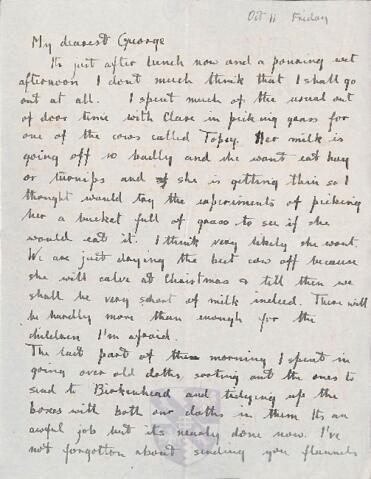 Oct 11 Friday
My dearest George
Its just after lunch now and a pouring wet
afternoon I dont much think that I shall go
out at all. I spent much of the usual out
of door time with Clare in picking grass for
one of the cows called Topsy. Her milk is
going off so badly and she wont eat hay
or turnips and she is getting thin so I
thought would try the experiments of picking
her a bucket full of grass to see if she
would eat it. I think very likely she wont.
We are just drying the best cow off because
she will calve at Christmas & till then we
shall be very short of milk indeed. There will
be hardly more than enough for the
children I'm afraid.
The last part of the morning I spent in
going over old cloths, sorting out the ones to
send to Birkenhead and tidying up the
boxes with both our cloths in them Its an
awful job but its nearly done now. I've
not forgotten about sending you flannels